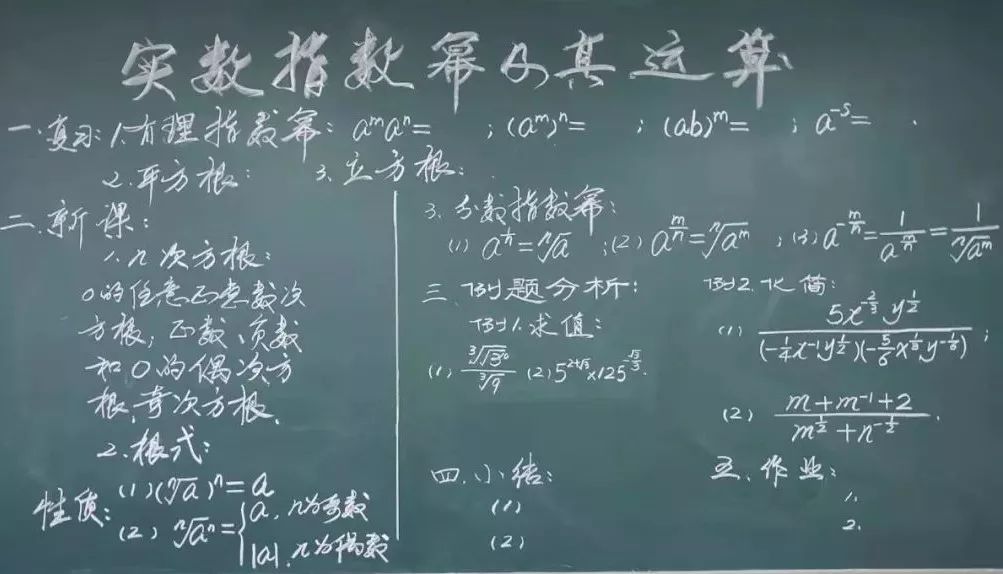 实数指数幂及其运算
一.复习:1.有理指数幂: aᵐaⁿ= ;(aᵐ)ⁿ= ; (ab)ᵐ= ; a⁻ˢ= .
2.平方根: 3.立方根:
二.新课:
1.n次方根:
0的任意正整数次
方根,正数、负数
和0的偶次方
根,奇次方根.
2.根式:
性质: (1)(ⁿ√a)ⁿ=a
(2) ⁿ√aⁿ={a, n为奇数
|a|, n为偶数
3.分数指数幂:
(1) a^(1/n)=ⁿ√a ;(2) a^(m/n)=ⁿ√aᵐ ;(3) a^(-m/n)=1/a^(m/n)=1/ⁿ√aᵐ
三.例题分析:
例1.求值:
(1) / ³√9 (2) 5^(2+√3)×125^(-√3/3).
例2.化简:
(1) 5x^(-2/3)y^(1/2) / (-1/4x⁻¹y^(1/2))(-5/6x^(1/3)y^(-1/6)) ;
(2) m+m⁻¹+2 / m^(1/2)+n^(-1/2) .
四.小结:
(1)
(2)
五.作业:
1.
2.